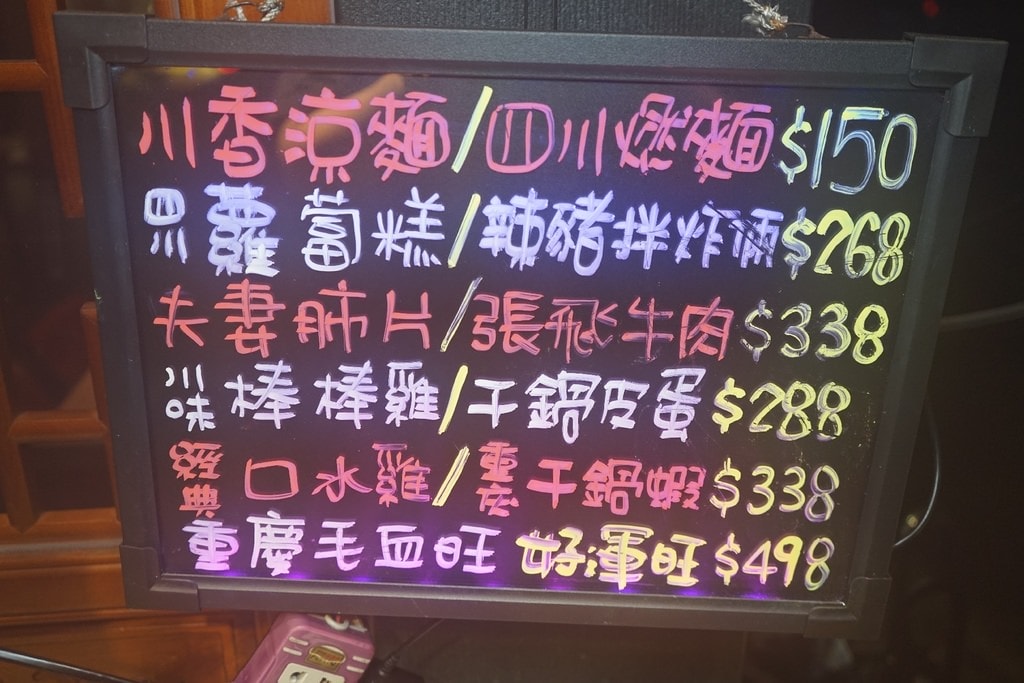 川香涼麵/四川燃麵$150
四川蘿蔔糕/辣豬拌炸両$268
夫妻肺片/張飛牛肉$338
川味棒棒雞/干鍋皮蛋$288
經典口水雞/重慶干鍋蝦$338
重慶毛血旺 好運旺$498